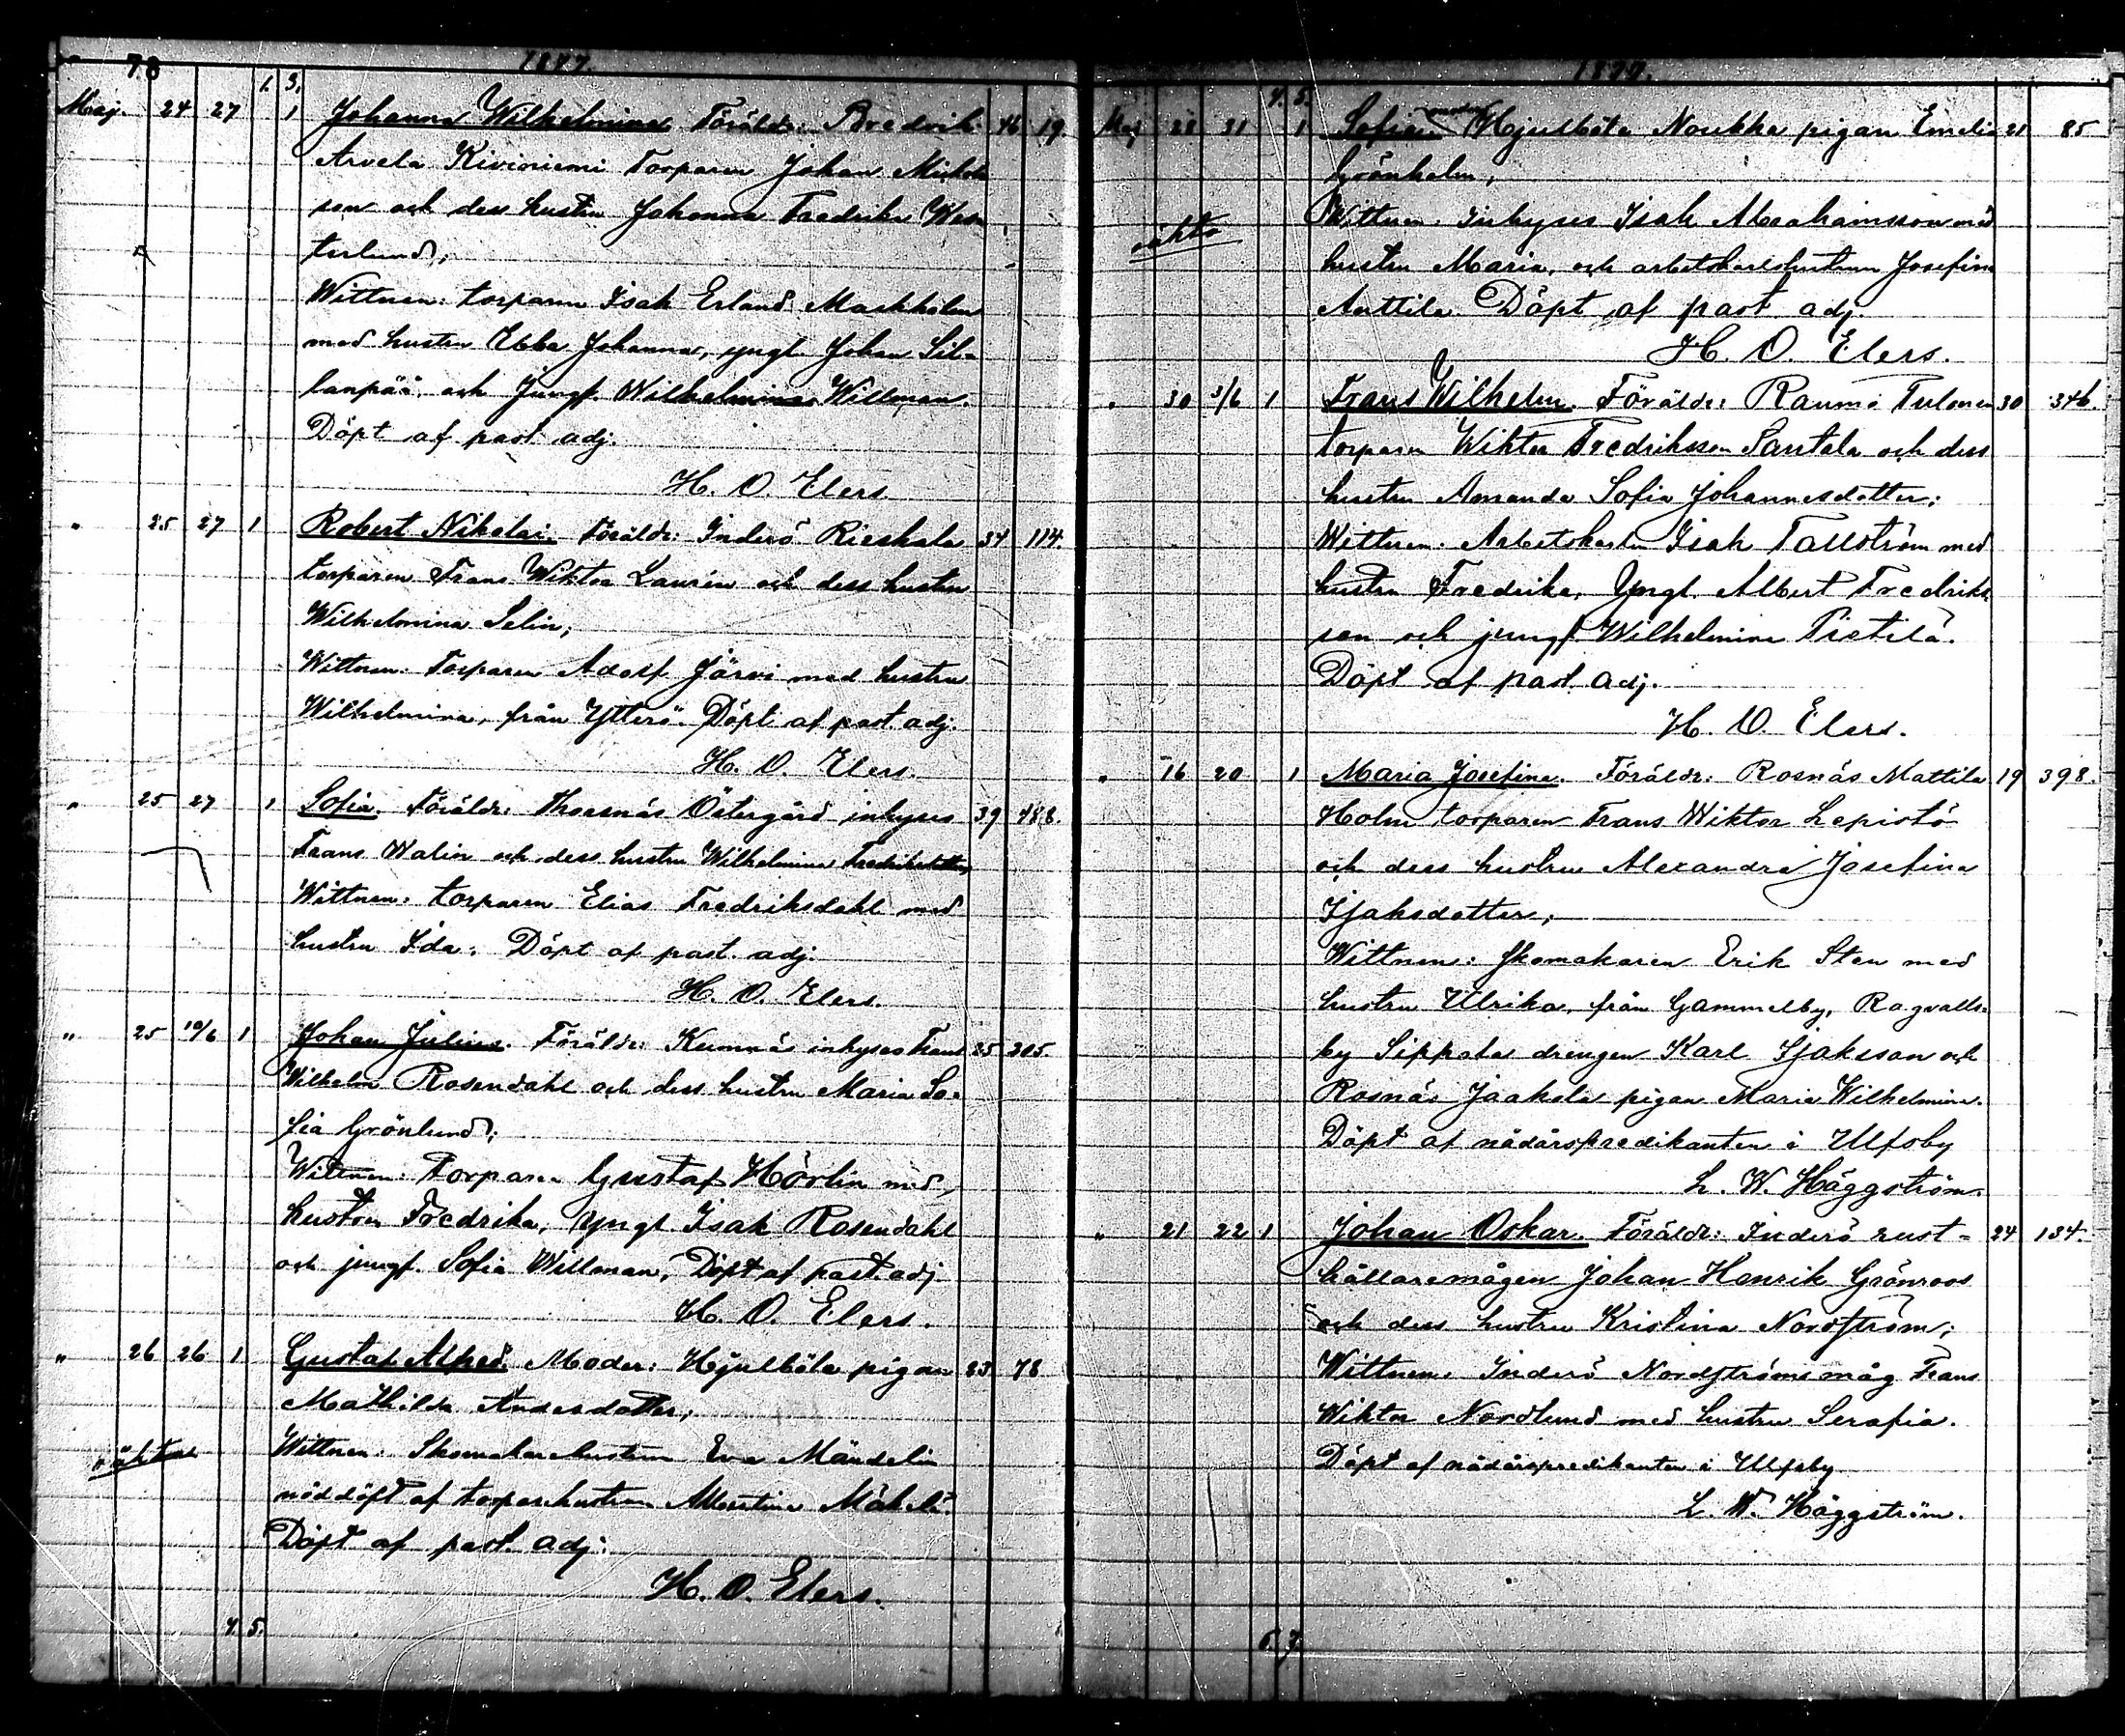 78 1877.
1. 3.
Maj. 24 27 1 Johanna Wilhelmina Föräldr: Bredvik 46 19.
Arvela Kiviniemi Torparen Johan Mickels
son och dess hustru Johanna Fredrika Wes
terlund;
Wittnen: torparen Isak Erland Markholm
med hustru Ebba Johanna, yngl. Johan Sil-
lanpää, och Jungf. Wilhelmina Willman.
Döpt af past. adj.
H. O. Elers.
" 25 27 1 Robert Nikolai. Föräldr: Inderö Rieskala 34 114.
torparen Frans Wiktor Laurén och dess hustru
Wilhelmina Selin;
Wittnen: Torparen Adolf Järvi med hustru
Wilhelmina, från Ytterö. Döpt af past. adj.
H. O. Elers.
" 25 27 1 Sofia. Föräldr: Thorsnäs Östergård inhyses 39 488.
Frans Walin och dess hustru Wilhelmina Fredriksdotter,
Wittnen: torparen Elias Fredriksdahl med
hustru Ida. Döpt af past. adj.
H. O. Elers.
" 25 10/6 1 Johan Julius. Föräldr: Kumnäs inhyses Frans 25 305.
Wilhelm Rosendahl och dess hustru Maria So-
fia Grönlund;
Wittnen: Torparen Gustaf Hörlin med
hustru Fredrika, Yngl. Isak Rosendahl
och jungf. Sofia Willman, Döpt af past. adj.
H. O. Elers.
" 26 26 1 Gustaf Alfred. Moder: Hjulböle pigan 23 78
Mathilda Andersdotter;
oäkta Wittnen: Skomakarehustrun Eva Mandelin
nöddöpt af torparehustrun Albertina Mäkelä.
Döpt af past. adj:
H. O. Elers.
4. 5.
1877.
4. 5.
Maj 28 31 1 Sofia moder Hjulböle Noukka pigan Emelia 21 85
Grönholm;
oäkta Wittnen: Inhyses Isak Abrahamsson med
hustru Maria, och arbetskarlshustrun Josefina
Anttila. Döpt af past. adj.
H. O. Elers.
" 30 3/6 1 Frans Wilhelm. Föräldr: Raumo Tulonen 30 346.
torparen Wiktor Fredriksson Santala och dess
hustru Amanda Sofia Johannesdotter;
Wittnen: Arbetskarlen Isak Tallström med
hustru Fredrika, Yngl. Albert Fredriks
son och jungf. Wilhelmina Pietilä.
Döpt af past. adj.
H. O. Elers.
" 16 20 1 Maria Josefina. Föräldr: Rosnäs Mattila 19 398.
Holm torparen Frans Wiktor Lepistö
och dess hustru Alexandra Josefina
Isaksdotter;
Wittnen: Skomakaren Erik Sten med
hustru Ulrika, från Gammelby, Ragvalls-
by Sippolas drengen Karl Isaksson och
Rosnäs Jaakola pigan Maria Wilhelmina.
Döpt af nådårspredikanten i Ulfsby
L. W. Häggström.
" 21 22 1 Johan Oskar. Föräldr: Inderö rust- 24 134.
hållaremågen Johan Henrik Grönroos
och dess hustru Kristina Nordström;
Wittnen: Inderö Nordströms måg Frans
Wiktor Nordlund med hustru Serafia.
Döpt af nådårspredikanten i Ulfsby
L. W. Häggström.
6. 7.